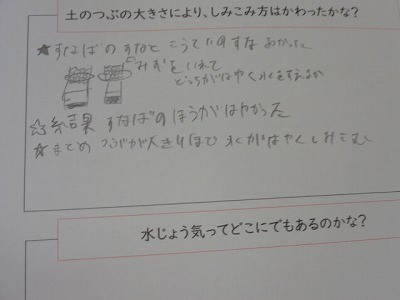 土のつぶの大きさにより、しみこみ方はかわったかな?
★すなばのすなと こうていのすな
みずをいれて
どっちがはやく水をすえるか
☆結果 すなばのほうがはやかった
★まとめ つぶが大きいほど 水がはやくしみこむ
水じょう気ってどこにでもあるのかな?